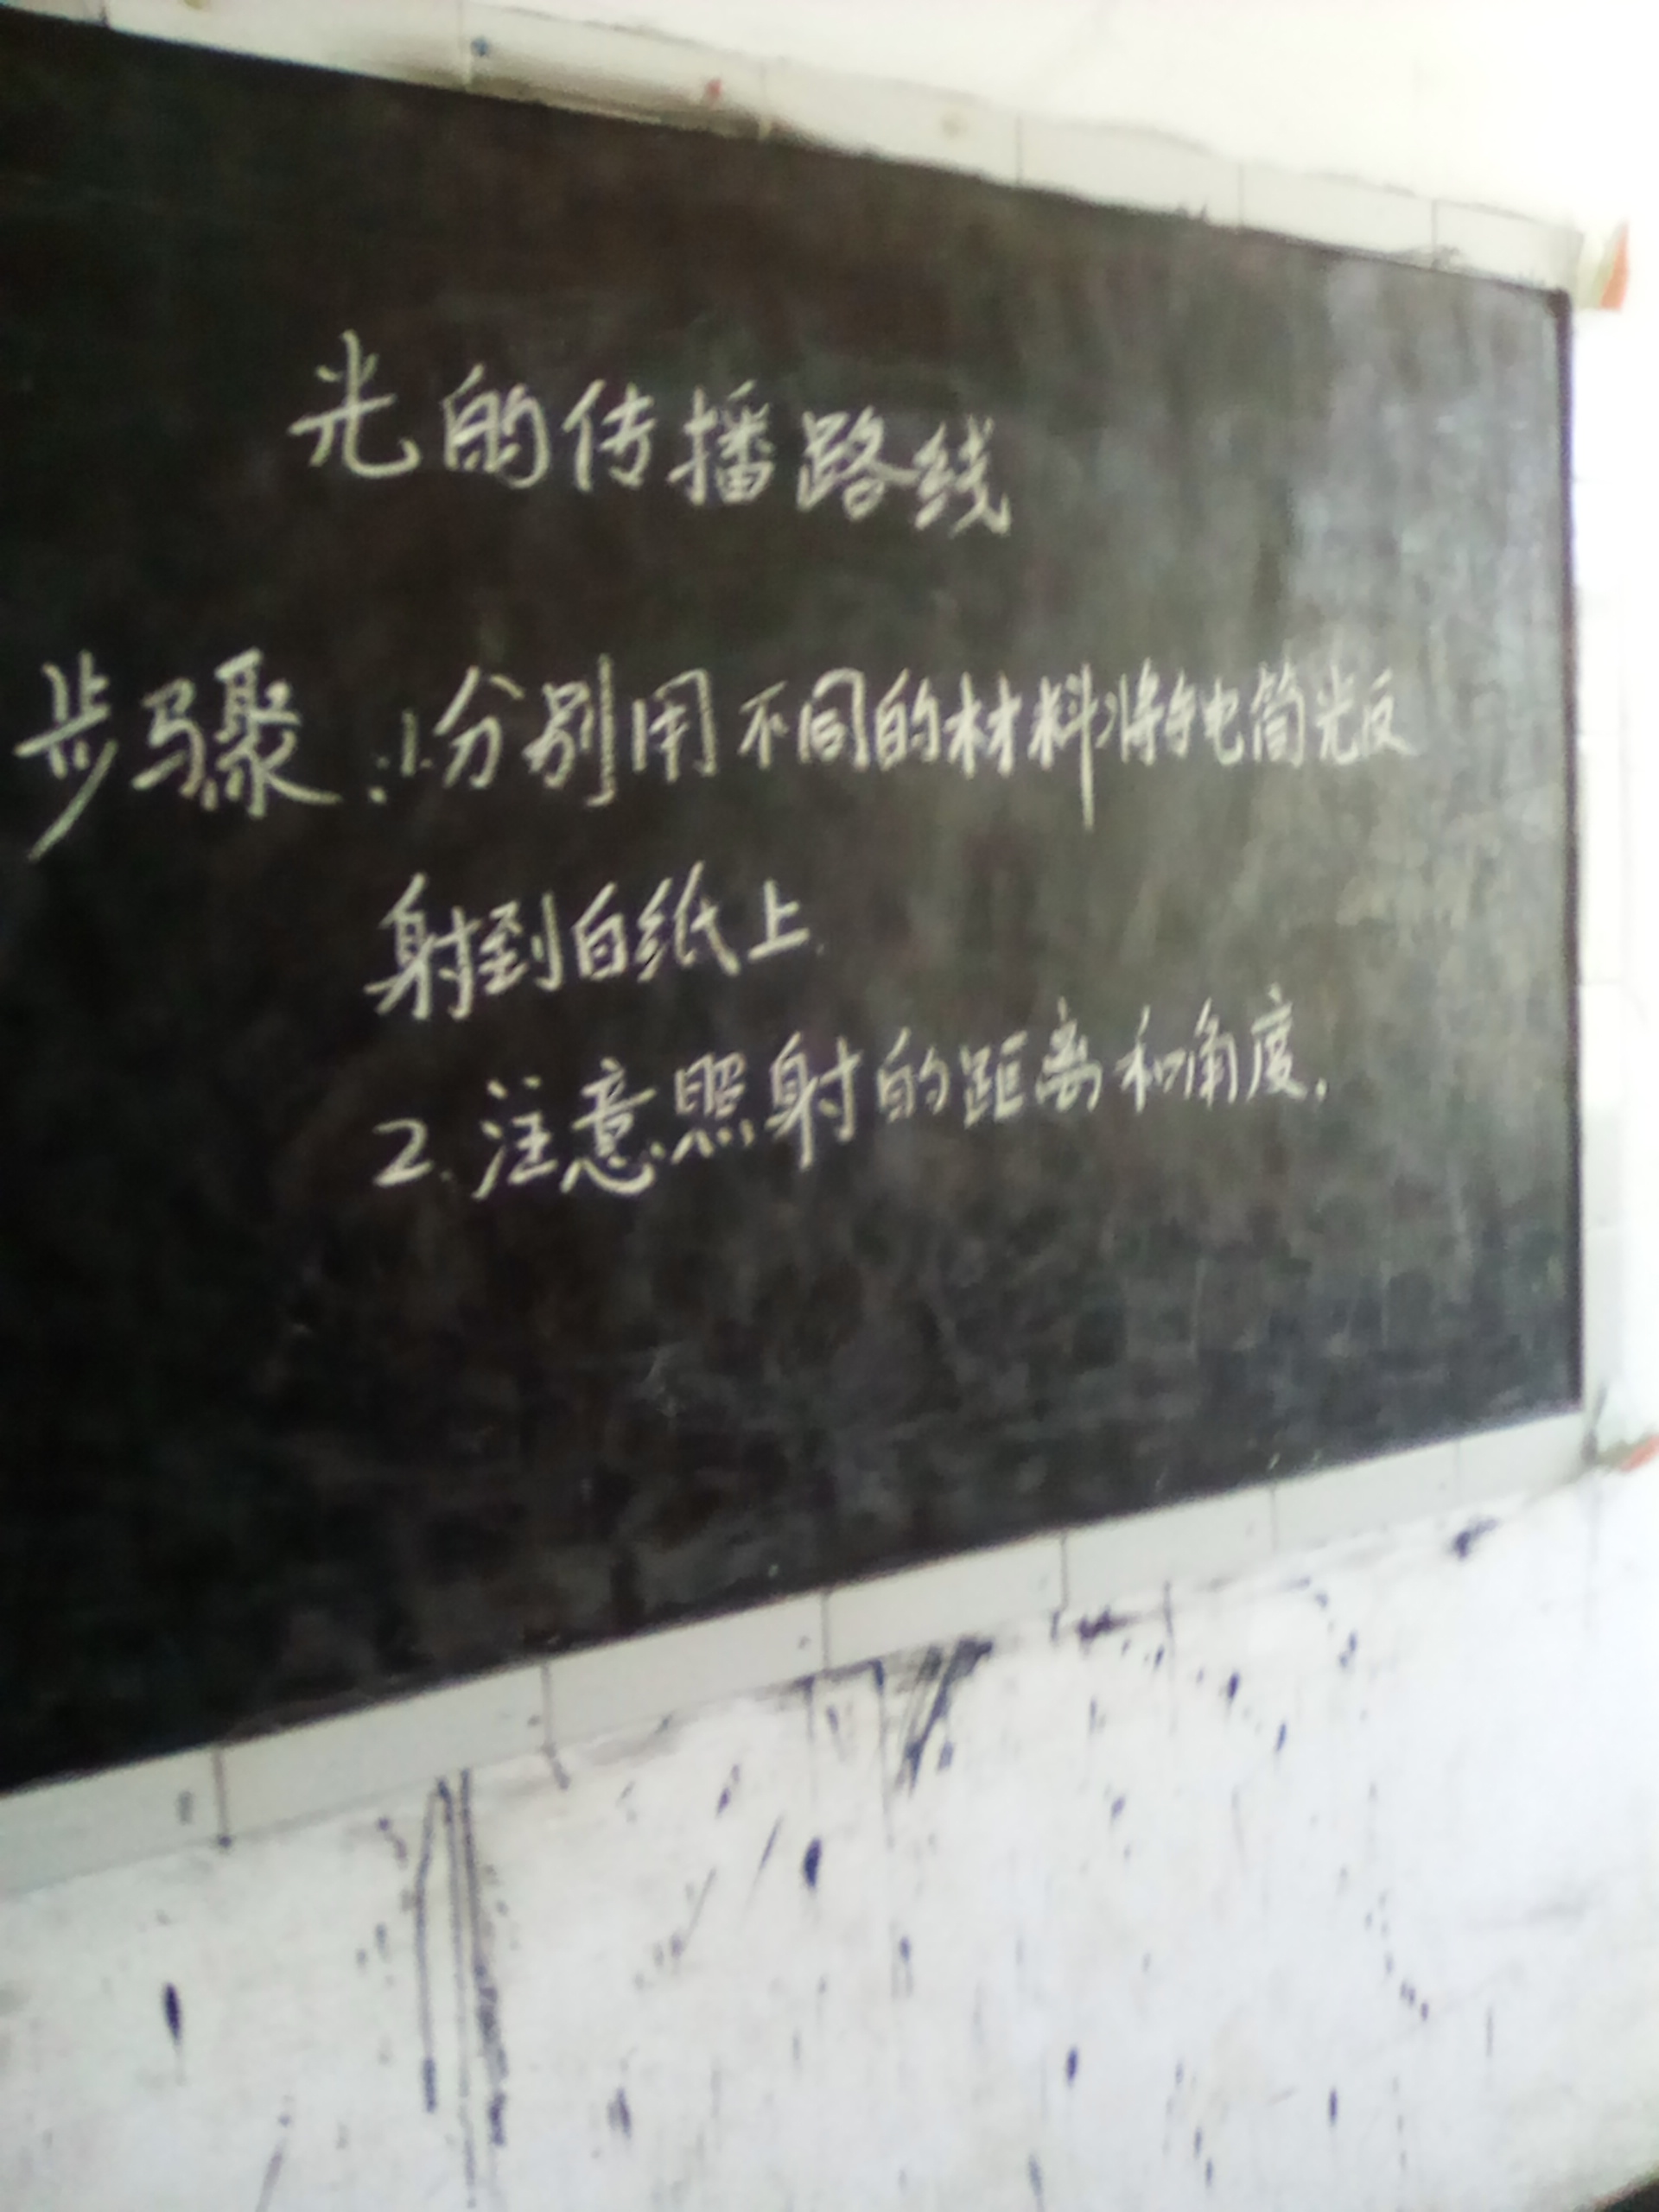 光的传播路线
步骤：1.分别用不同的材料将手电筒光反
射到白纸上.
2.注意照射的距离和角度.